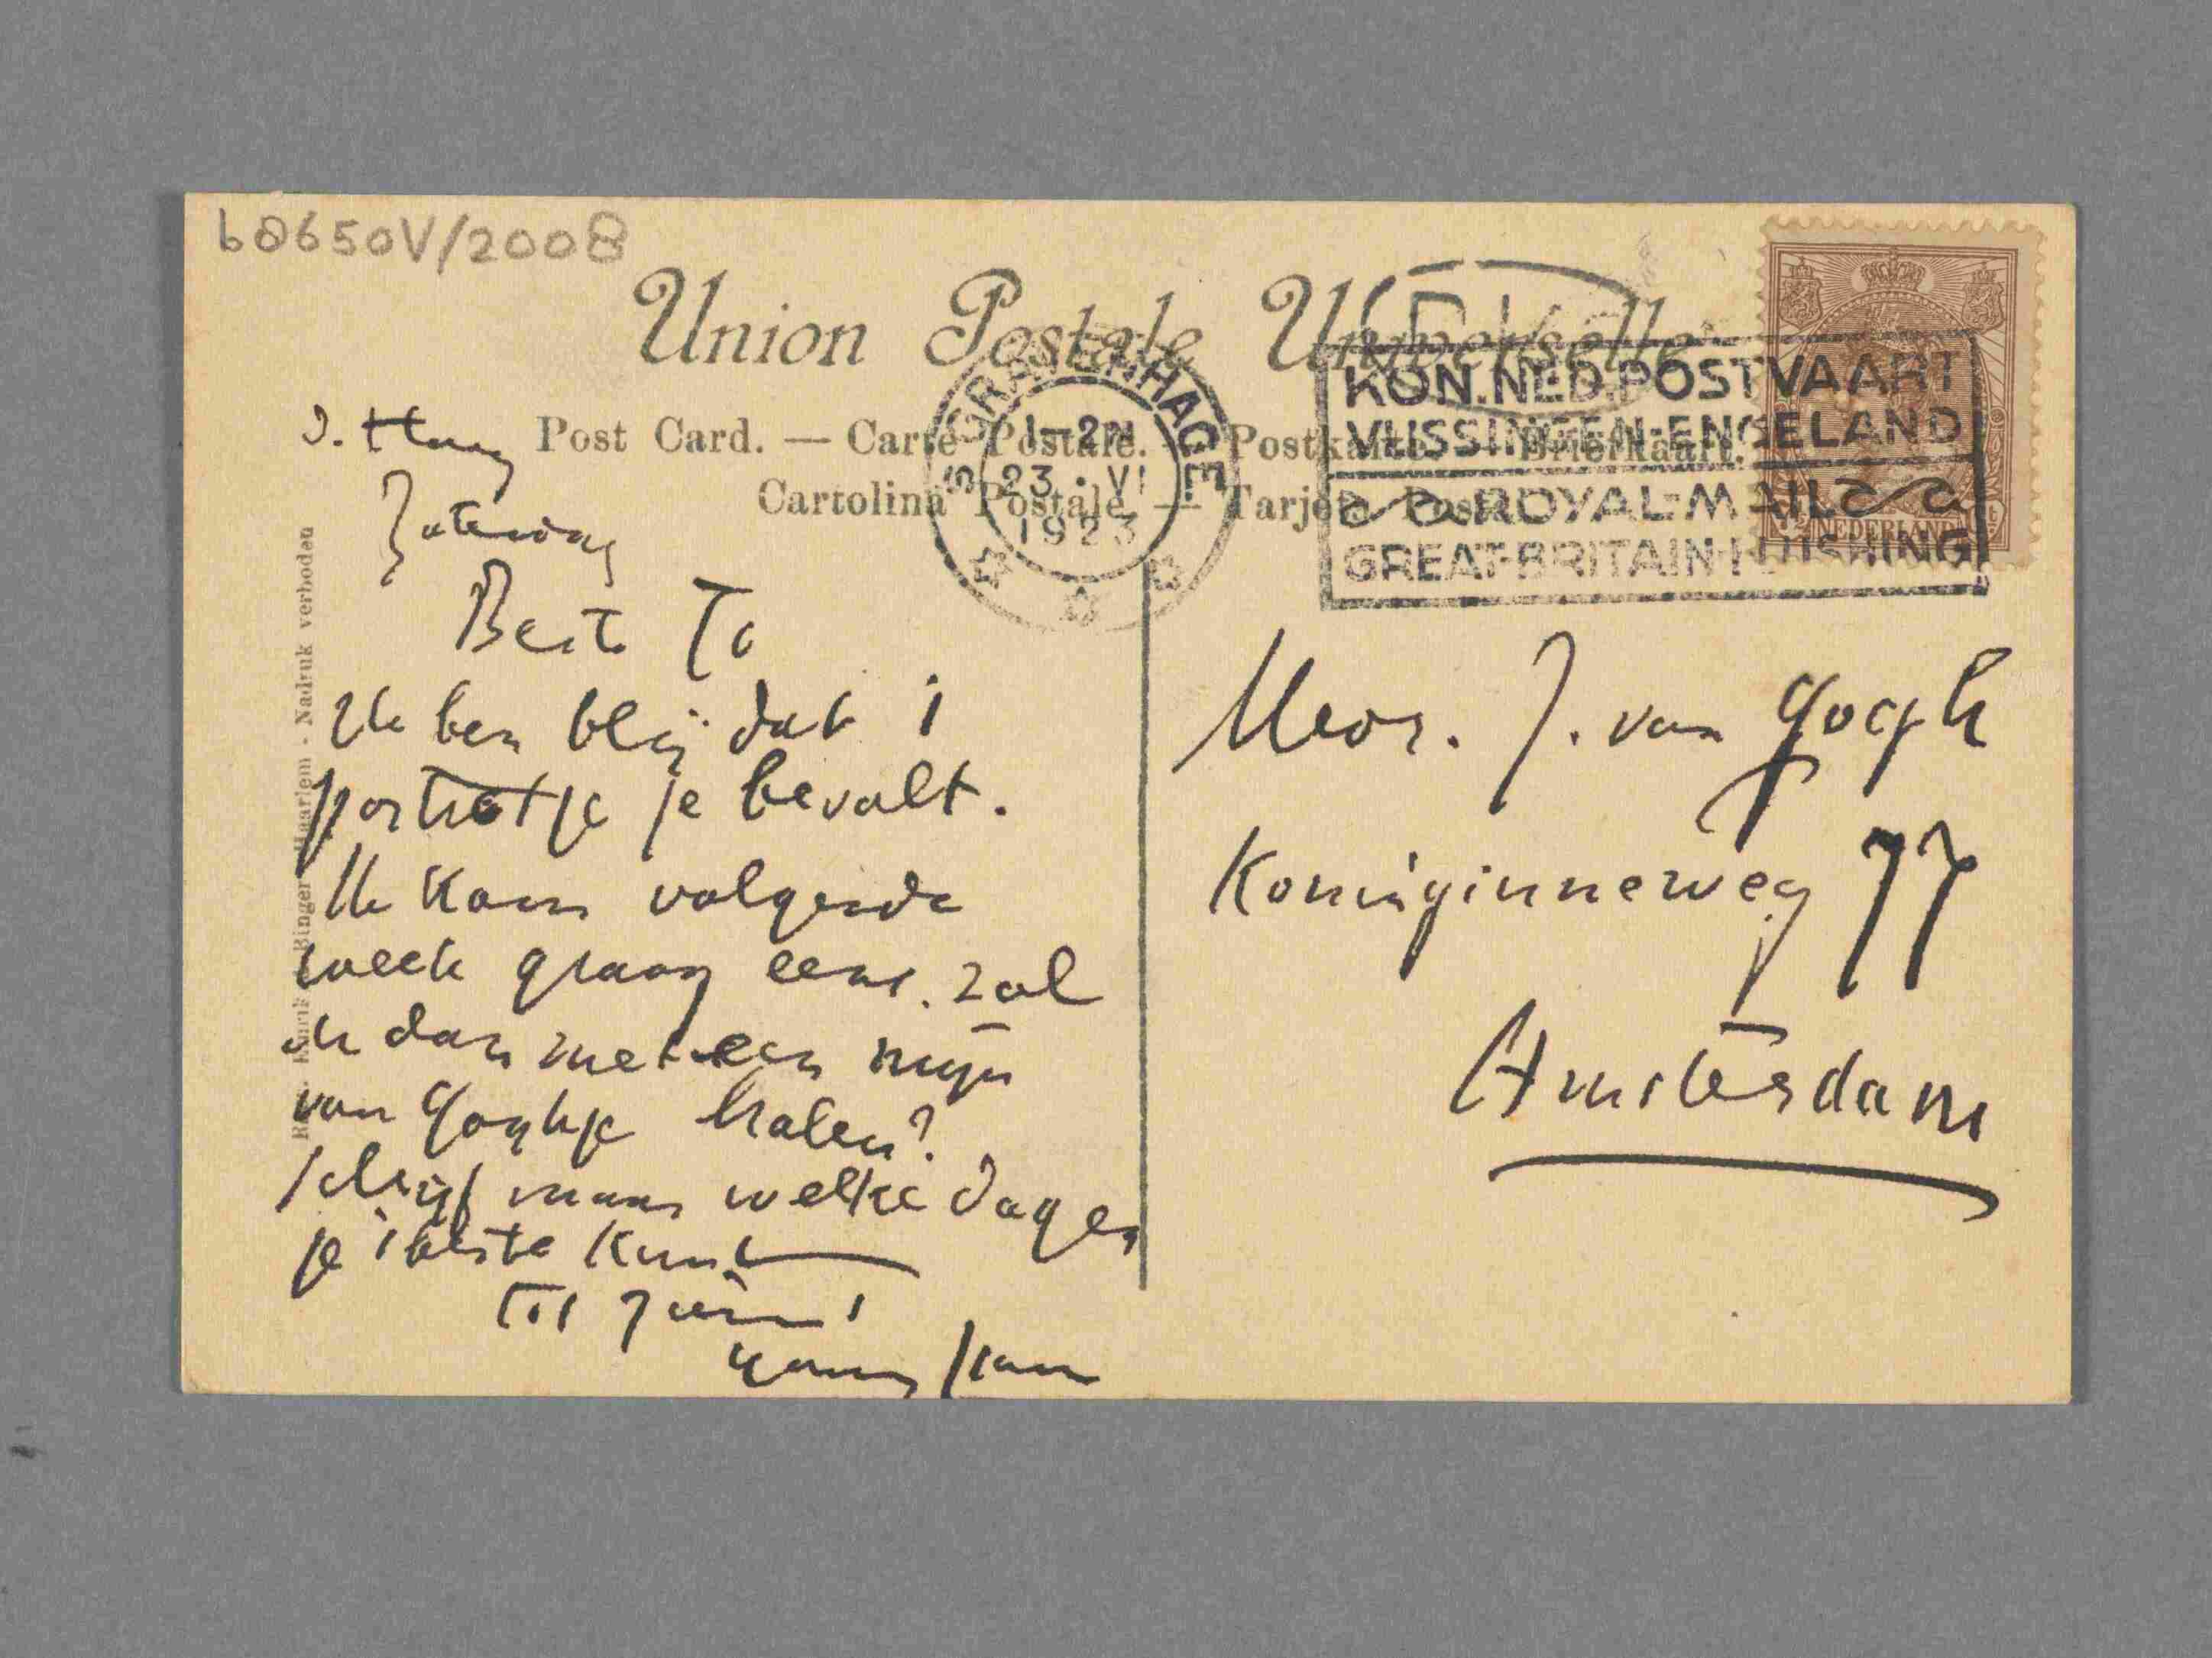 b8650V/2008
Union Postale Universelle
Post Card. — Carte Postale. — Postkarte. — Briefkaart.
Cartolina Postale — Tarjeta Postal
'S GRAVENHAGE
1-2N
23·VI
1923
KON.NED.POSTVAART
VLISSINGEN-ENGELAND
ROYAL-MAIL
GREAT-BRITAIN-FLUSHING
NEDERLAND
Nadruk verboden
d. Haag
Zaterdag
Beste Jo
Ik ben blij dat 't
portretje je bevalt.
Ik kom volgende
week graag eens. Zal
ik dan meteen mijn
van Goghje halen?
Schrijf maar welke dagen
je 't beste kunt
tot ziens!
Mevr. J. van Gogh
Koninginneweg 77
Amsterdam